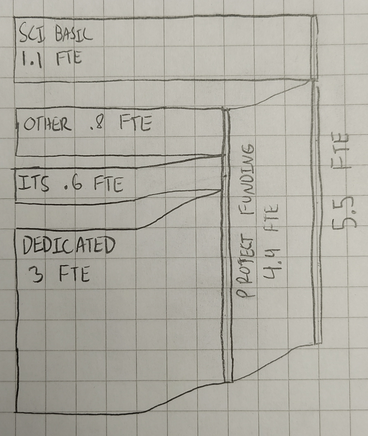 SCI BASIC
1.1 FTE
OTHER .8 FTE
ITS .6 FTE
DEDICATED
3 FTE
PROJECT FUNDING
4.4 FTE
5.5 FTE